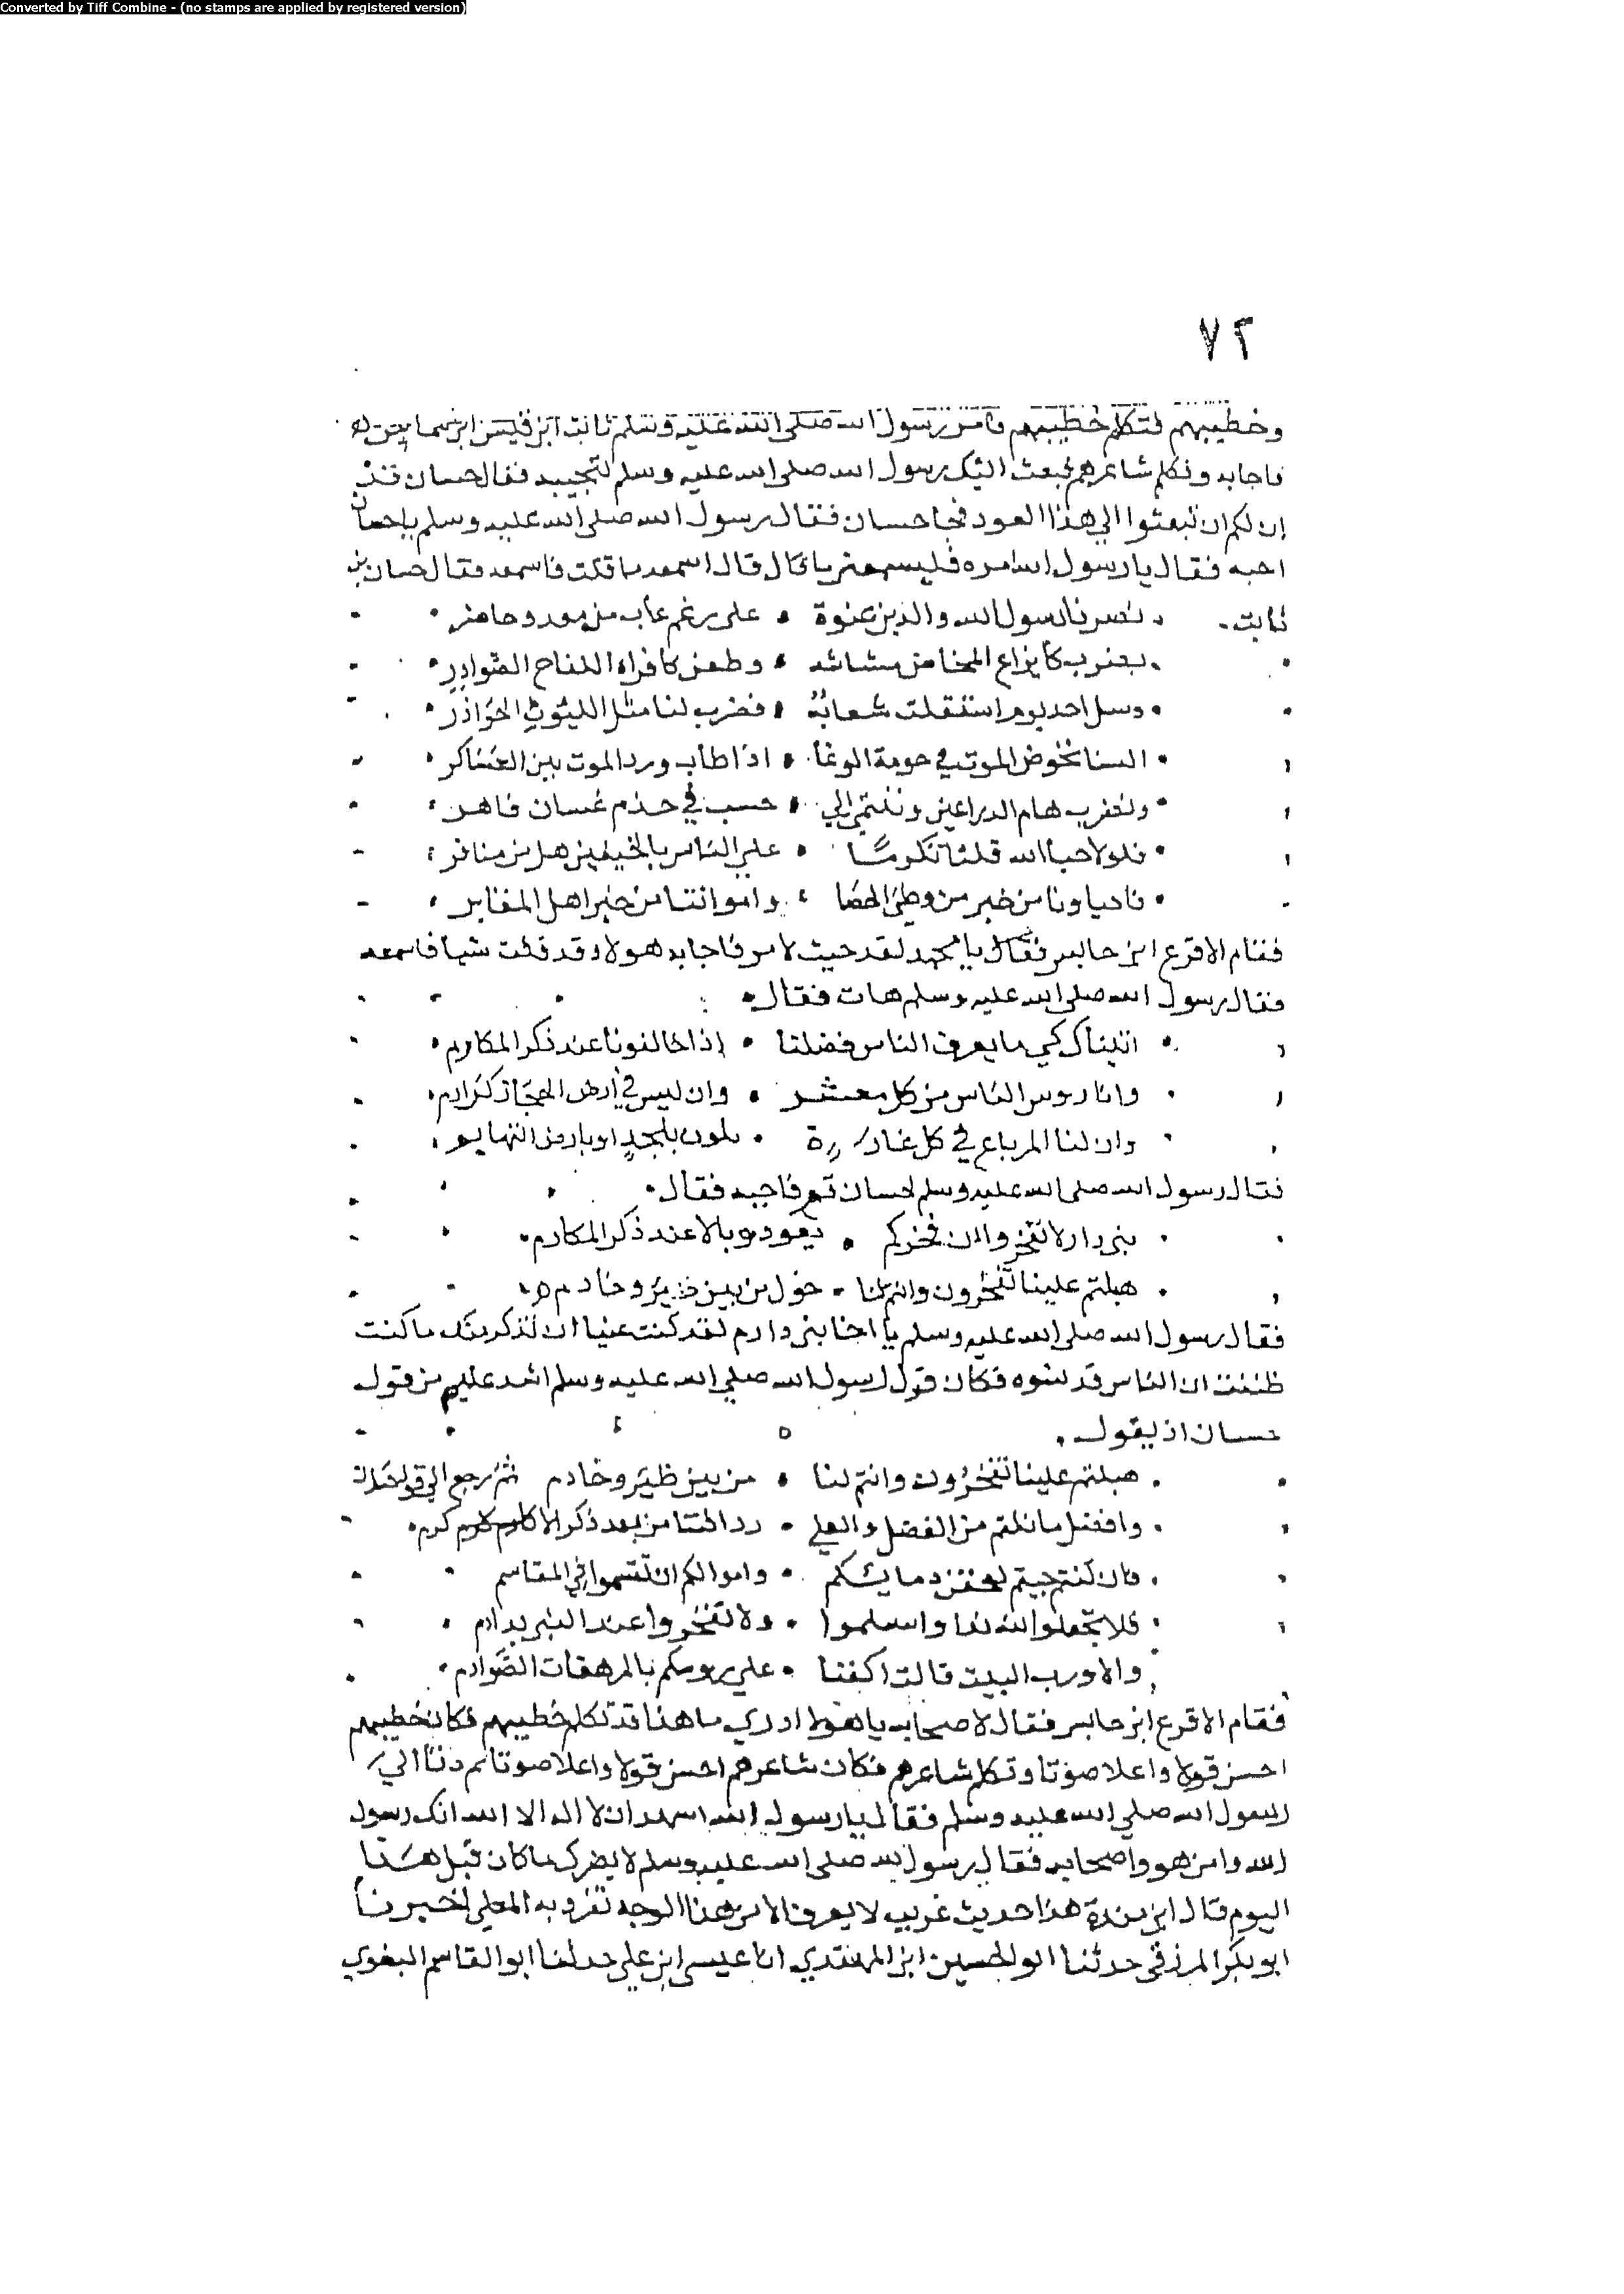 Converted by Tiff Combine - (no stamps are applied by registered version)
٧٢
وخطيبهم فتكلم خطيبهم فامر رسول الله صلى الله عليه وسلم ثابت ابن قيس ابن شماس
فاجابه وتكلم شاعرهم فبعث اليك رسول الله صلى الله عليه وسلم لتجيبه فقال حسان قد
ان لكم ان تبعثوا الي هذا العود فجا حسان فقال رسول الله صلى الله عليه وسلم يا حسان
اجبه فقال يا رسول الله مره فليسمعني ما قال قال اسمعه ما قلت فاسمعه فقال حسان بن
ثابت . نصرنا رسول الله والدين عنوة • على رغم عاب من معد وحاضر
بضرب كايزاع المخاض مشاشه • وطعن كافواه اللقاح الصوادر
وسل احد يوم استقلت شعابه • فضرب لنا مثل الليوث الخواذر
السنا نخوض الموت في حومة الوغا • اذا طاب ورد الموت بين العساكر
ونضرب هام الدراعين وننتمي الي • حسب في جذم غسان قاهر
فلولا حيا الله قلنا تكرما • علي الناس بالخيفين هل من منافر
فاحياونا من خير من وطئ الحصا • وامواتنا من خير اهل المقابر
فقام الاقرع ابن حابس فقال يا محمد لقد جيت لامر فاجابه هولاء وقد قلت شيا فاسمعه
فقال رسول الله صلى الله عليه وسلم هات فقال
اتيناك كي ما يعرف الناس فضلنا • اذا خالفونا عند ذكر المكارم
وانا روس الناس من كل معشر • وان ليس في ارض الحجاز كدارم
وان لنا المرباع في كل غارة • بنجد او بارض التهايم
فقال رسول الله صلى الله عليه وسلم لحسان قم فاجبه فقال
بني دارم لا تفخروا ان فخركم • يعود وبالا عند ذكر المكارم
هبلتم علينا تفخرون وانتم لنا • خول من بين ظير وخادم
فقال رسول الله صلى الله عليه وسلم يا اخا بني دارم لقد كنت غنيا ان تذكر منك ما كنت
ظننت ان الناس قد نسوه فكان قول رسول الله صلى الله عليه وسلم اشد عليهم من قول
حسان اذ يقول
هبلتم علينا تفخرون وانتم لنا • من بين ظير وخادم ثم رجع الي قوله
وافضل ما نلتم من الفضل والعلي • من بعد ذكر
فان كنتم جيتم لحقن دمايكم • واموالكم ان تقسموا في المقاسم
فلا تجعلوا لله ندا واسلموا • ولا تفخروا عند النبي بدارم
والا ورب البيت قالت اكفنا • علي روسكم بالمرهفات الصوارم
فقام الاقرع ابن حابس فقال لاصحابه يا هولا ادري ما هذا قد تكلم خطيبهم فكان خطيبهم
احسن قولا واعلا صوتا وتكلم شاعرهم فكان شاعرهم احسن قولا واعلا صوتا ثم دنا الي
رسول الله صلي الله عليه وسلم فقال يا رسول الله اشهد ان لا اله الا الله انك رسول
الله وامن هو واصحابه فقال رسول الله صلى الله عليه وسلم لا يضرك ما كان قبل هذا
اليوم قال ابن مندة هذا حديث غريب لا يعرف الا من هذا الوجه تفرد به المعلي اخبرنا
ابو بكر المزرفي حدثنا ابو الحسين ابن المهتدي انا عيسى ابن علي حدثنا ابو القاسم البغوي